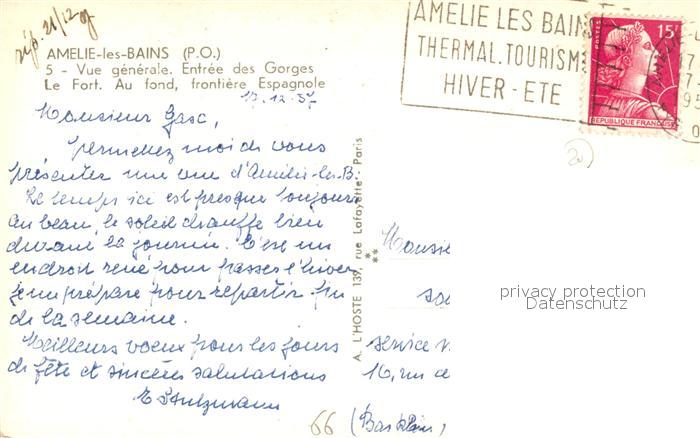 rép. 21/12 57
AMELIE-les-BAINS (P.O.)
5 - Vue générale. Entrée des Gorges
Le Fort. Au fond, frontière Espagnole
17.12.57
Monsieur Gasc,
permettez moi de vous
présenter une vue d'Amélie-les-B.
Le temps ici est presque toujours
au beau, le soleil chauffe bien
durant la journée. C'est un
endroit rêvé pour passer l'hiver
je me prépare pour repartir fin
de la semaine.
Meilleurs voeux pour les jours
de fête et sincères salutations
A. L'HOSTE 139, rue Lafayette - Paris
AMELIE LES BAINS
THERMAL. TOURISM
HIVER - ETE
POSTES
15
REPUBLIQUE FRANÇAISE
20
Monsie
privacy protection
Datenschutz
service
16, rue
66
(Bas Rhin)